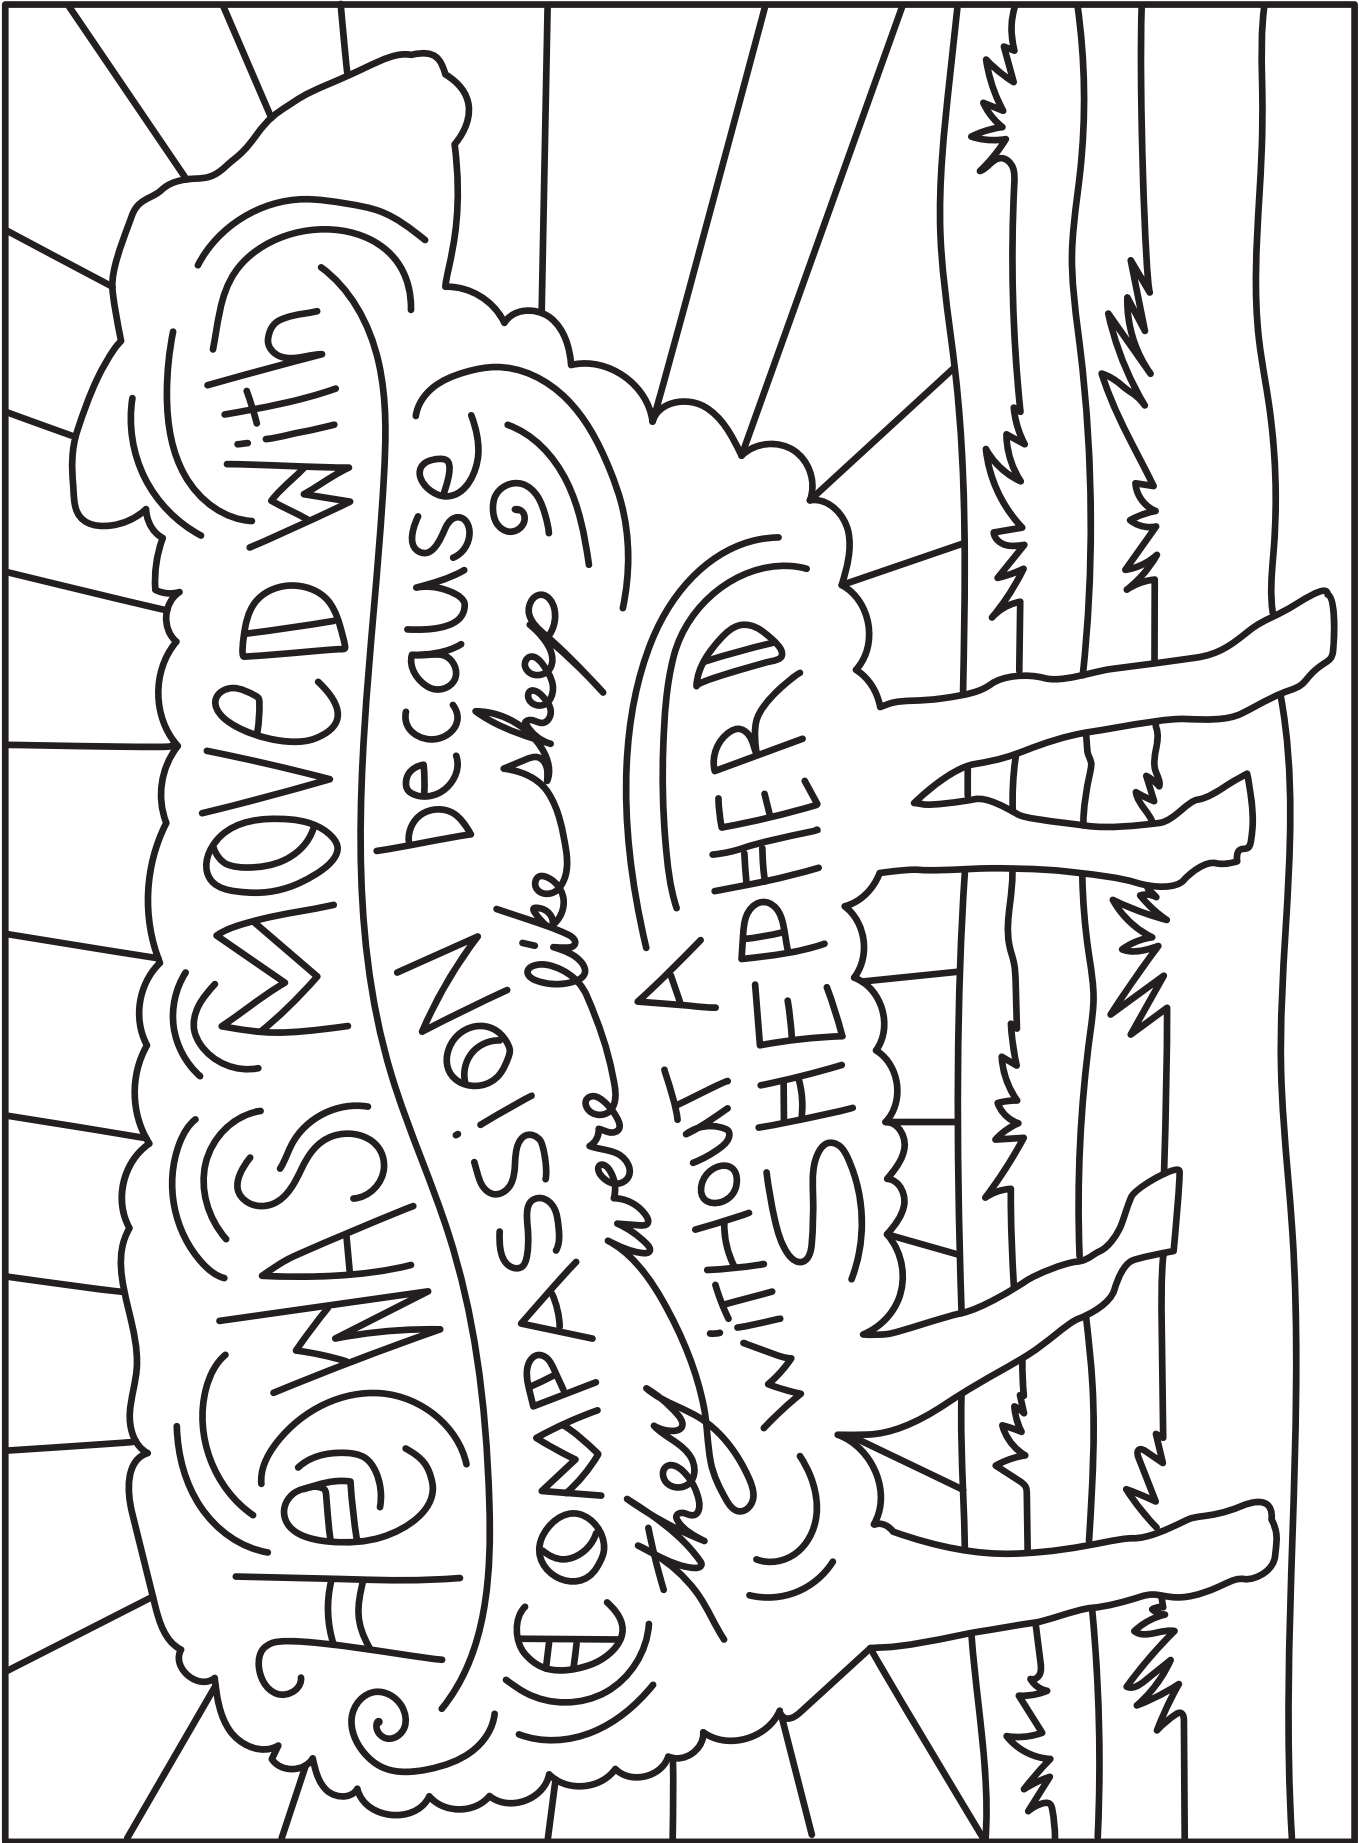 He WAS MOVeD with
COMPASSiON because
they were like sheep
WiTHOUT A
SHEPHERD